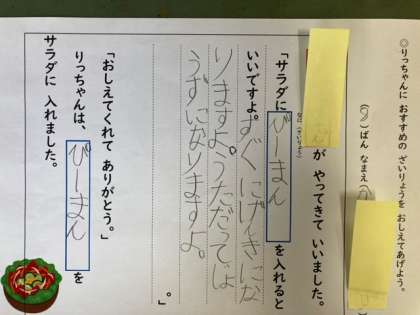 ◎りっちゃんに おすすめの ざいりょうを おしえてあげよう。
)ばん なまえ(
が やってきて いいました。
なに(ざいりょう)
「サラダに ぴーまん を入れると
いいですよ。すぐ にげんきにな
りますよ。うただってじょ
うずになりますよ。
。」
「おしえてくれて ありがとう。」
りっちゃんは、ぴーまん を
サラダに 入れました。